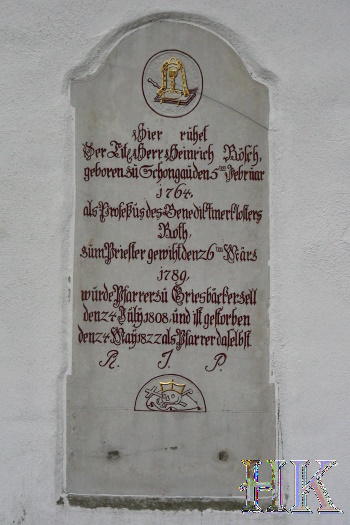 Hier ruhet
Der Tit. Herr Heinrich Rösch,
geboren zu Schongau den 5ten Februar
1764.
als Profeßus des Benediktinerklosters
Roth,
zum Priester gewiht den 26ten März
1789.
wurde Pfarrer zu Griesbäckerzell
den 24 July 1808. und ist gestorben
den 24 May 1822 als Pfarrer daselbst.
R. I. P.
HK